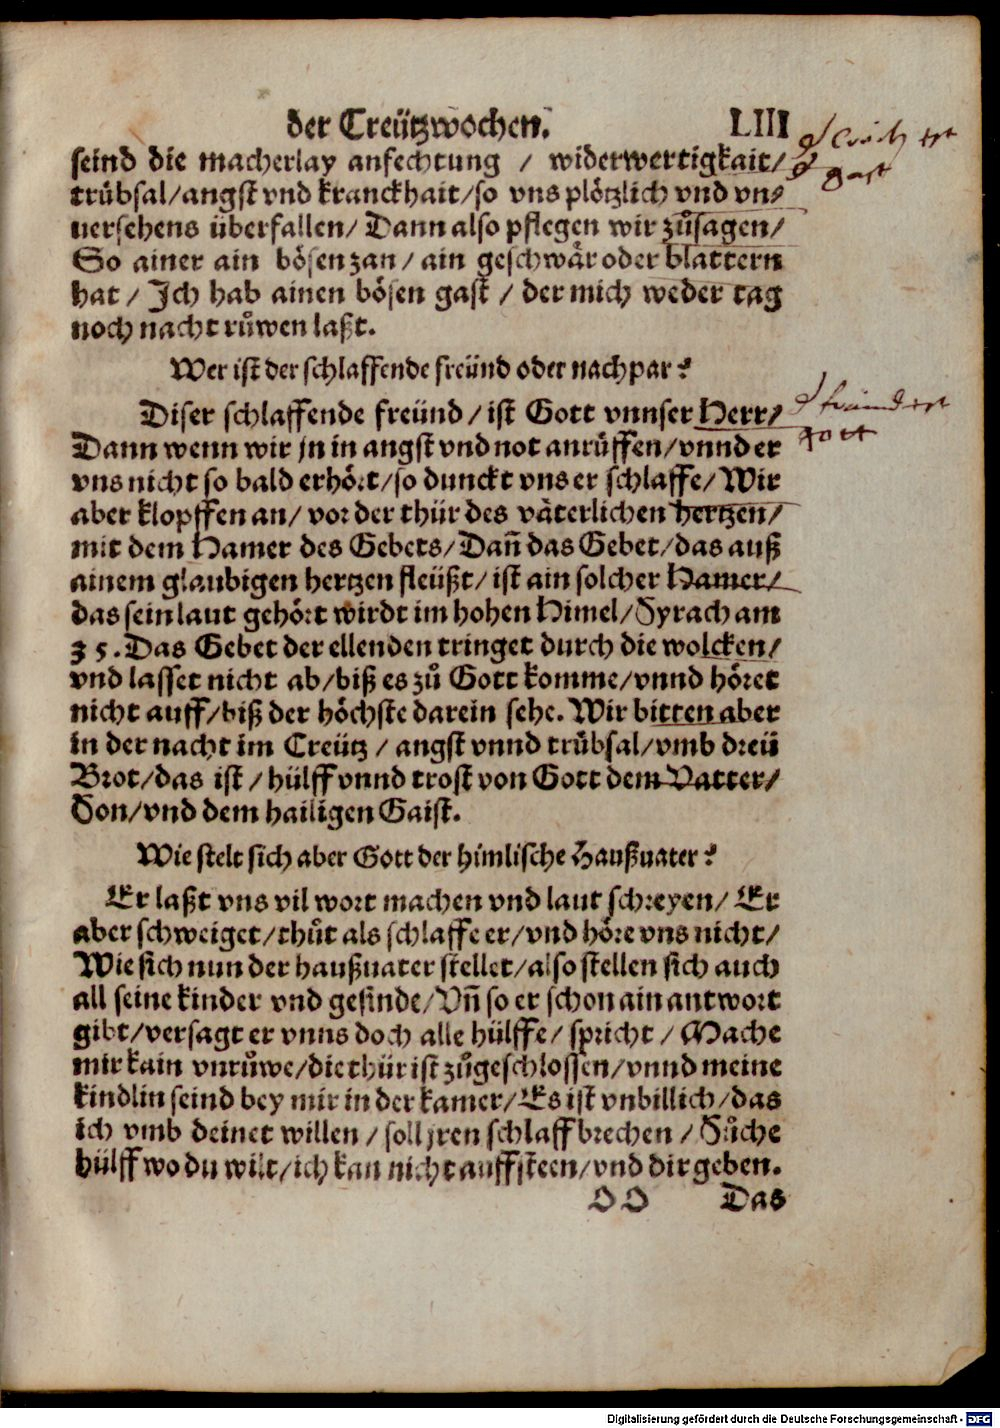 der Creützwochen. LIII
seind die macherlay anfechtung / widerwertigkait/
trübsal/angst vnd kranckhait/so vns plötzlich vnd vn⸗
uersehens überfallen/ Dann also pflegen wir zůsagen/
So ainer ain bösen zan/ ain geschwär oder blattern
hat / Ich hab ainen bösen gast / der mich weder tag
noch nacht růwen laßt.
Wer ist der schlaffende freünd oder nachpar?
Diser schlaffende freünd/ist Gott vnnser Herr/
gott
Dann wenn wir jn in angst vnd not anrüffen/vnnd er
vns nicht so bald erhört/so dunckt vns er schlaffe/Wir
aber klopffen an/ vor der thür des väterlichen hertzen/
mit dem Hamer des Gebets/Dañ das Gebet/das auß
ainem glaubigen hertzen fleüßt/ist ain solcher Hamer/
das sein laut gehört wirdt im hohen Himel/Syrach am
35. Das Gebet der ellenden tringet durch die wolcken/
vnd lasset nicht ab/biß es zů Gott komme/vnnd höret
nicht auff/biß der höchste darein sehe. Wir bitten aber
in der nacht im Creütz / angst vnnd trübsal/vmb dreü
Brot/das ist / hülff vnnd trost von Gott dem Vatter/
Son/vnd dem hailigen Gaist.
Wie stelt sich aber Gott der himlische Haußuater?
Er laßt vns vil wort machen vnd laut schreyen/ Er
aber schweiget/thůt als schlaffe er/vnd höre vns nicht/
Wie sich nun der haußuater stellet/also stellen sich auch
all seine kinder vnd gesinde/Vñ so er schon ain antwort
gibt/versagt er vnns doch alle hülffe/ spricht / Mache
mir kain vnrůwe/die thür ist zůgeschlossen/vnnd meine
kindlin seind bey mir in der kamer/Es ist vnbillich/das
ich vmb deinet willen / soll jren schlaff brechen / Sůche
hülff wo du wilt/ich kan nicht auffsteen/vnd dir geben.
OO Das
Digitalisierung gefördert durch die Deutsche Forschungsgemeinschaft - DFG